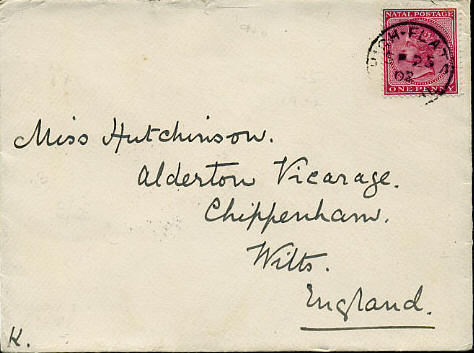 NATAL POSTAGE
HIGH-FLATS
25
02
ONE PENNY
Miss Hutchinson.
Alderton Vicarage.
Chippenham.
Wilts.
England.
K.